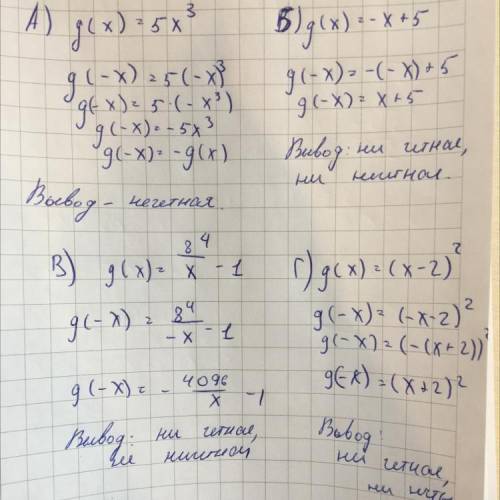 А) g(x) = 5x³
g(-x) = 5(-x)³
g(-x) = 5·(-x³)
g(-x) = -5x³
g(-x) = -g(x)
Вывод - нечетная.
Б) g(x) = -x + 5
g(-x) = -(-x) + 5
g(-x) = x + 5
Вывод: ни четная,
ни нечетная.
В) g(x) = 8⁴/x - 1
g(-x) = 8⁴/-x - 1
g(-x) = - 4096/x - 1
Вывод: ни четная,
ни нечетная
Г) g(x) = (x-2)²
g(-x) = (-x-2)²
g(-x) = (-(x+2))²
g(-x) = (x+2)²
Вывод:
ни четная,
ни